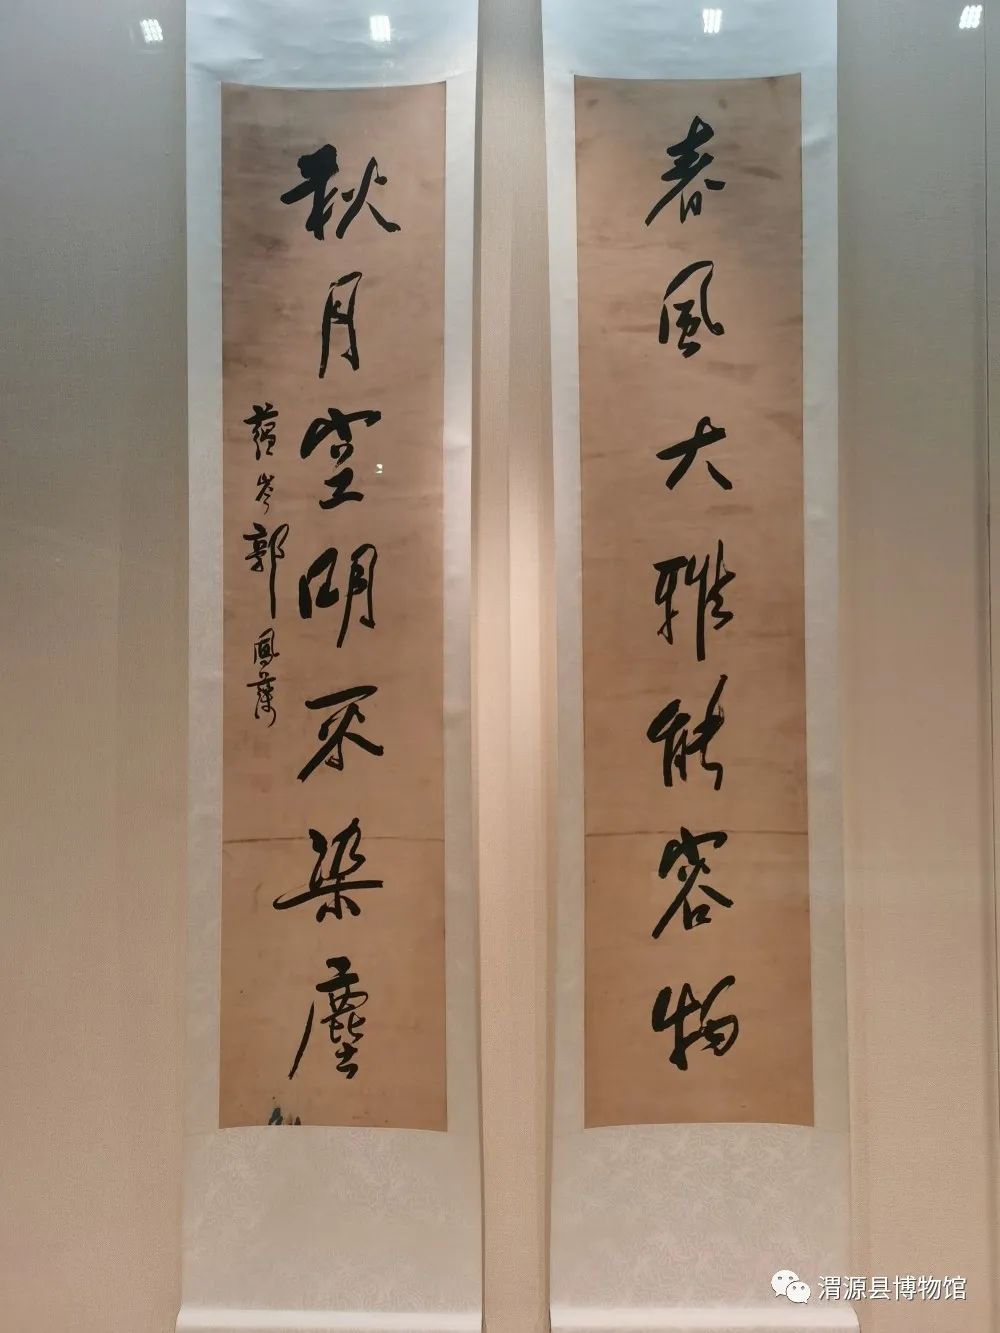 春風大雅能容物
秋月空明不染塵
蘊岑郭鳳藻
渭源县博物馆